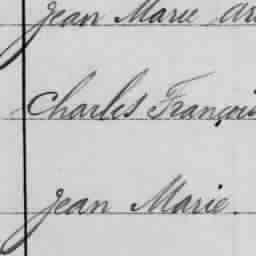 Jean Marie
Charles François
Jean Marie.